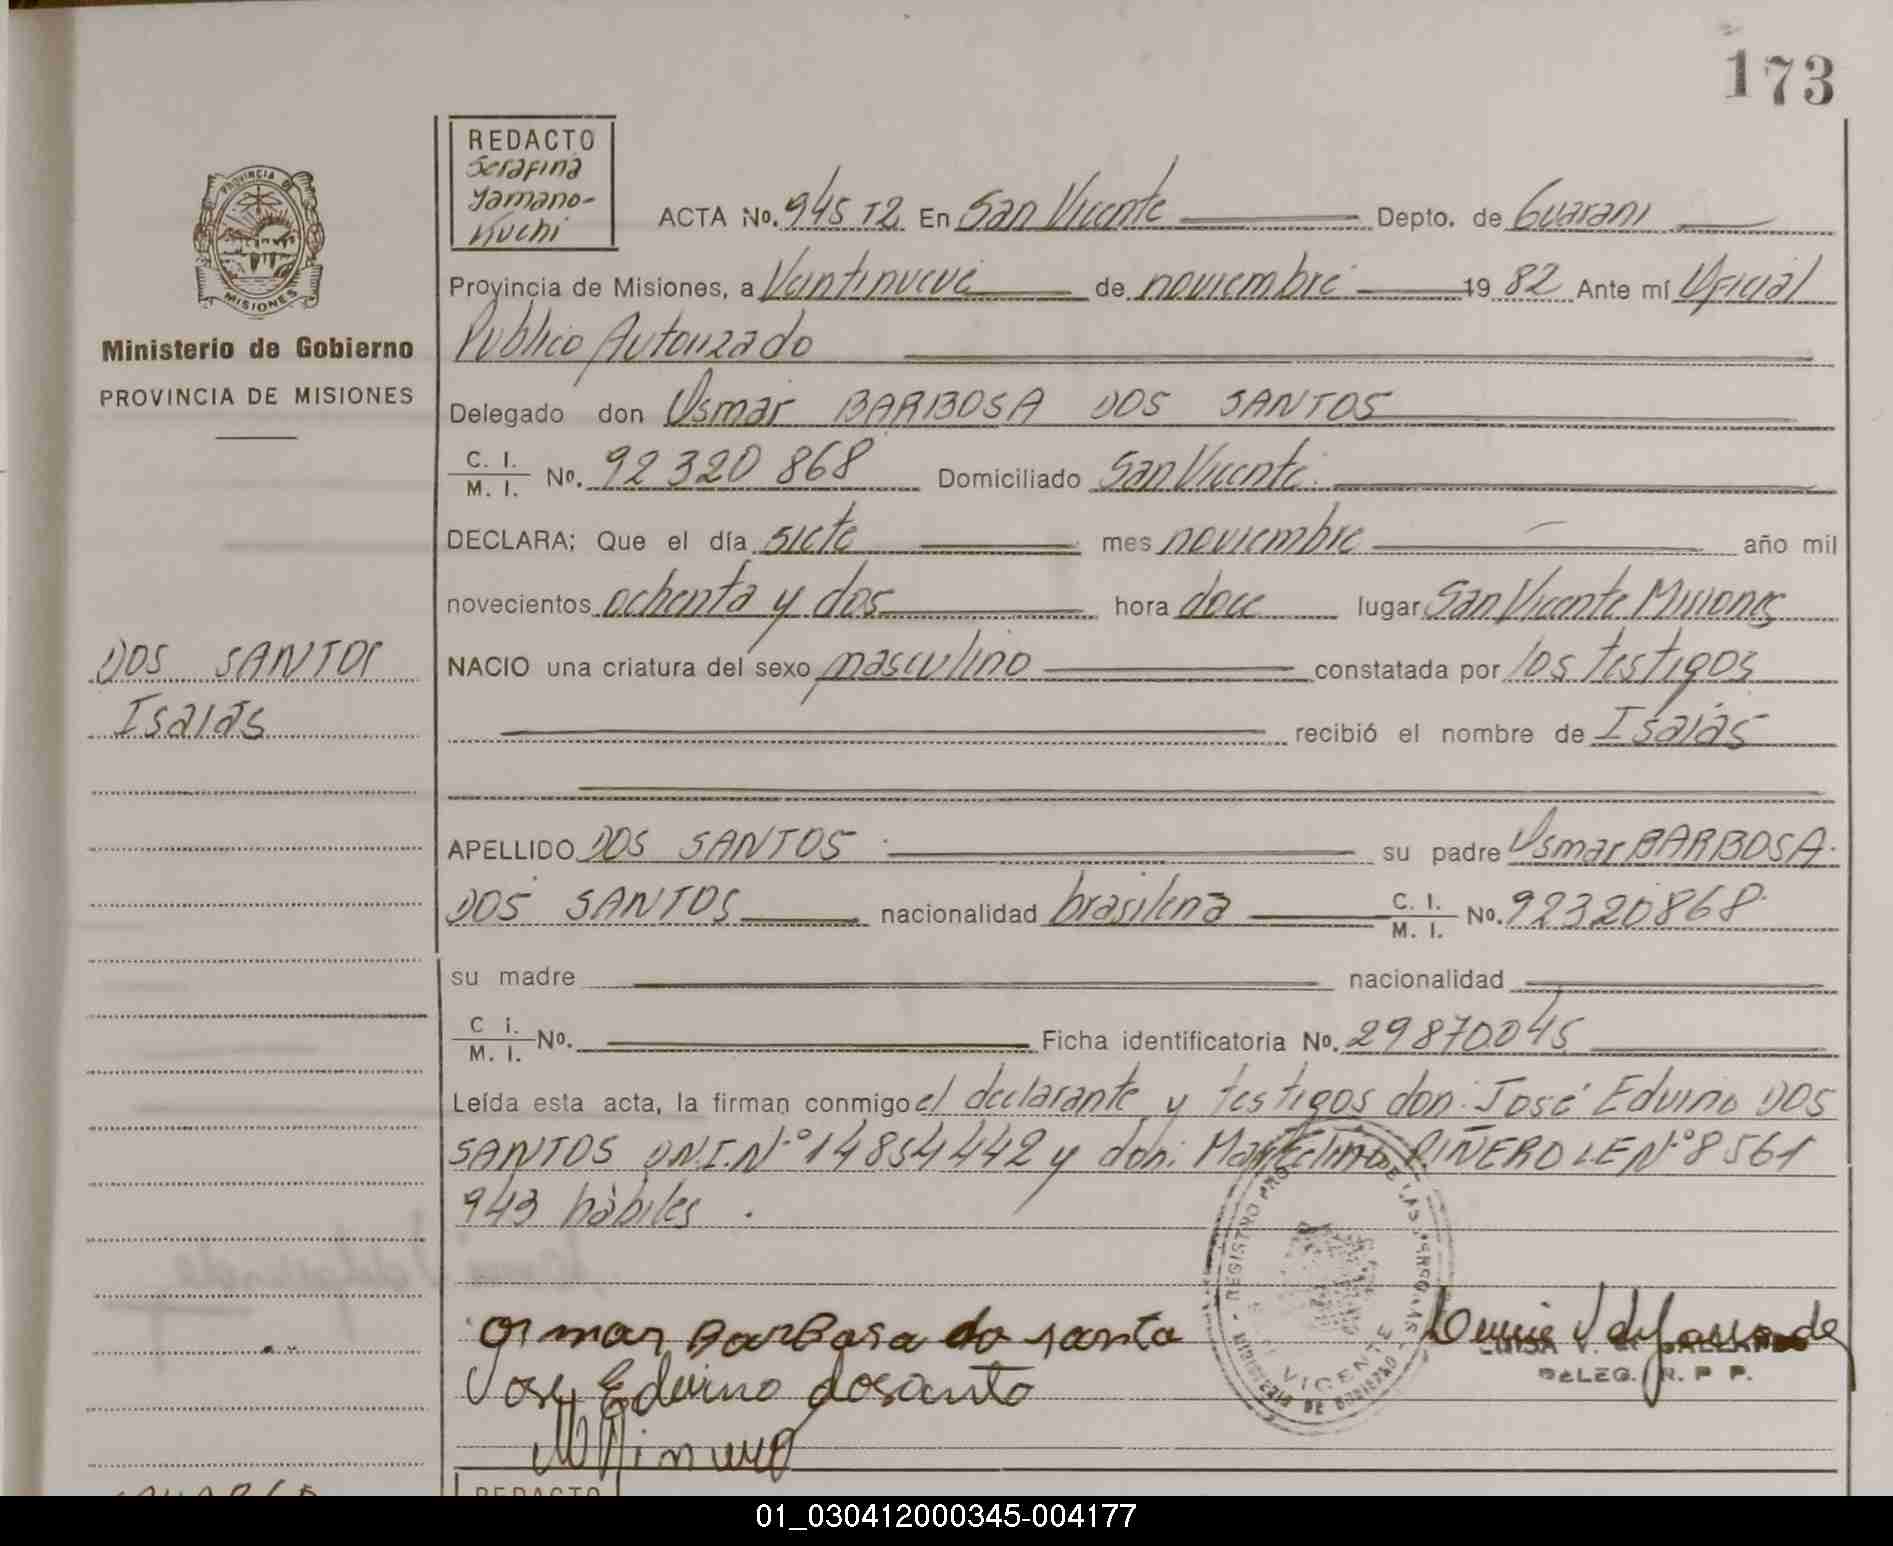 173
REDACTO
Serafina
Yamano-
Kuchi
PROVINCIA DE
MISIONES
Ministerio de Gobierno
PROVINCIA DE MISIONES
DOS SANTOS
Isaias
ACTA No. 945 T2 En San Vicente Depto. de Guarani
Provincia de Misiones, a Veintinueve de noviembre 1982 Ante mí Oficial
Publico Autorizado
Delegado don Osmar BARBOSA DOS SANTOS
C. I. / M. I. No. 92 320 868 Domiciliado San Vicente
DECLARA: Que el día siete mes noviembre año mil
novecientos ochenta y dos hora doce lugar San Vicente Misiones
NACIO una criatura del sexo masculino constatada por los testigos
recibió el nombre de Isaías
APELLIDO DOS SANTOS su padre Osmar BARBOSA
DOS SANTOS nacionalidad brasilena C. I. / M. I. No. 92320868
su madre nacionalidad
C I. / M. I. No. Ficha identificatoria No. 29870045
Leída esta acta, la firman conmigo el declarante y testigos don: José Edvino DOS
SANTOS DN.I.Nº 14854442 y don: Marcelino PIÑERO LE Nº 8561
943 hábiles.
Osmar Barbosa do santo
Jose Edvino dosanto
VICENTE
DELEG. R. P. P.
REDACTO
01_030412000345-004177